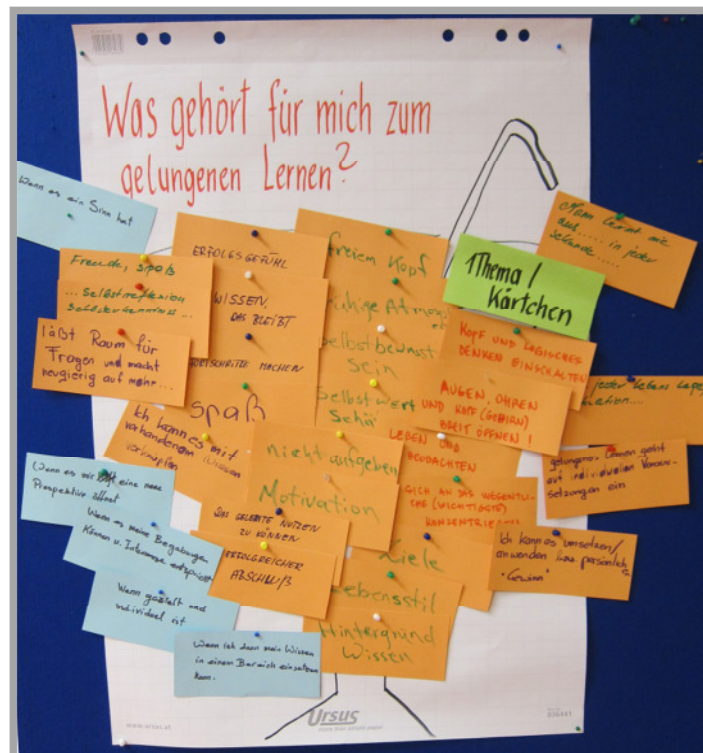 Was gehört für mich zum
gelungenen Lernen?
Wenn es ein Sinn hat
Freude, Spaß
... Selbstreflexion
läßt Raum für
Fragen und macht
neugierig auf mehr...
ERFOLGSGEFÜHL
WISSEN,
DAS BLEIBT
MACHEN
Spaß
Ich kann es mit
vorhandenem Wissen
verknüpfen
freiem Kopf
ruhige Atmosp
Selbstbewusst
sein
Selbstwert
nicht aufgeben
Motivation
DAS GELERNTE NUTZEN
ZU KÖNNEN
ERFOLGREICHER
ABSCHLUß
Ziele
Lebensstil
Hintergrund
Wissen
1 Thema /
Kärtchen
KOPF UND LOGISCHES
DENKEN EINSCHALTEN
AUGEN, OHREN
UND KOPF (GEHIRN)
BREIT ÖFFNEN !
LEBEN UND
BEOBACHTEN
SICH AN DAS WESENTLI-
CHE (WICHTIGSTE)
KONZENTRIEREN
Mann lernt nie
aus ..... in jeder
Sekunde .....
jeder Lebens Lage
gelungenes Lernen geht
auf individuellen Voraus-
setzungen ein
Ich kann es umsetzen/
anwenden bzw persönlich
"Gewinn"
Wenn es mir eine neue
Perspektive öffnet
Wenn es meine Begabungen
Können u. Interesse entspricht
Wenn gezielt und
individuel ist
Wenn ich dann mein Wissen
in einem Bereich einsetzen
kann.
www.ursus.at
Ursus